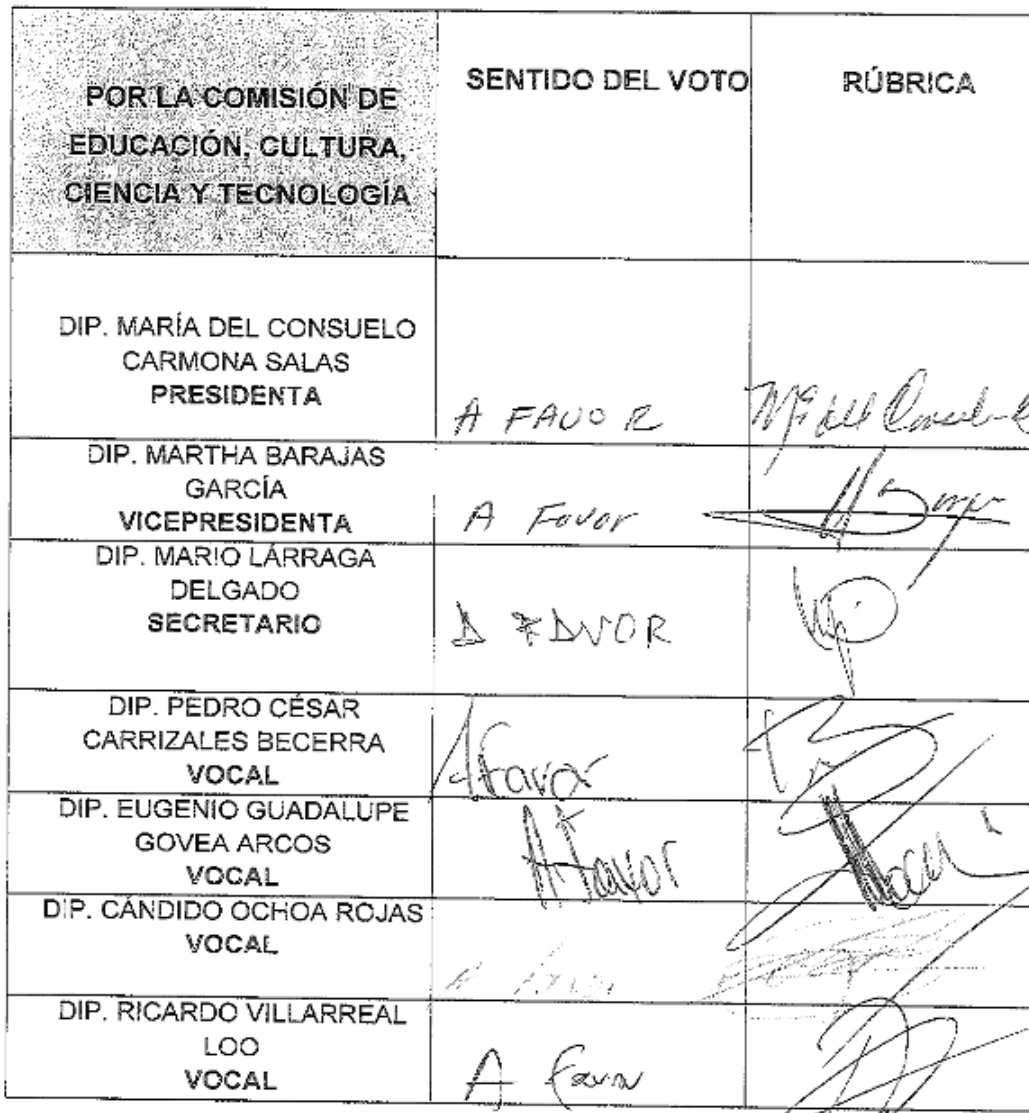 POR LA COMISIÓN DE
EDUCACIÓN, CULTURA,
CIENCIA Y TECNOLOGÍA
SENTIDO DEL VOTO
RÚBRICA
DIP. MARÍA DEL CONSUELO
CARMONA SALAS
PRESIDENTA
A FAVOR
Mª del Consuelo C
DIP. MARTHA BARAJAS
GARCÍA
VICEPRESIDENTA
A Favor
DIP. MARIO LÁRRAGA
DELGADO
SECRETARIO
A FAVOR
DIP. PEDRO CÉSAR
CARRIZALES BECERRA
VOCAL
A favor
DIP. EUGENIO GUADALUPE
GOVEA ARCOS
VOCAL
A favor
DIP. CÁNDIDO OCHOA ROJAS
VOCAL
A
DIP. RICARDO VILLARREAL
LOO
VOCAL
A favor